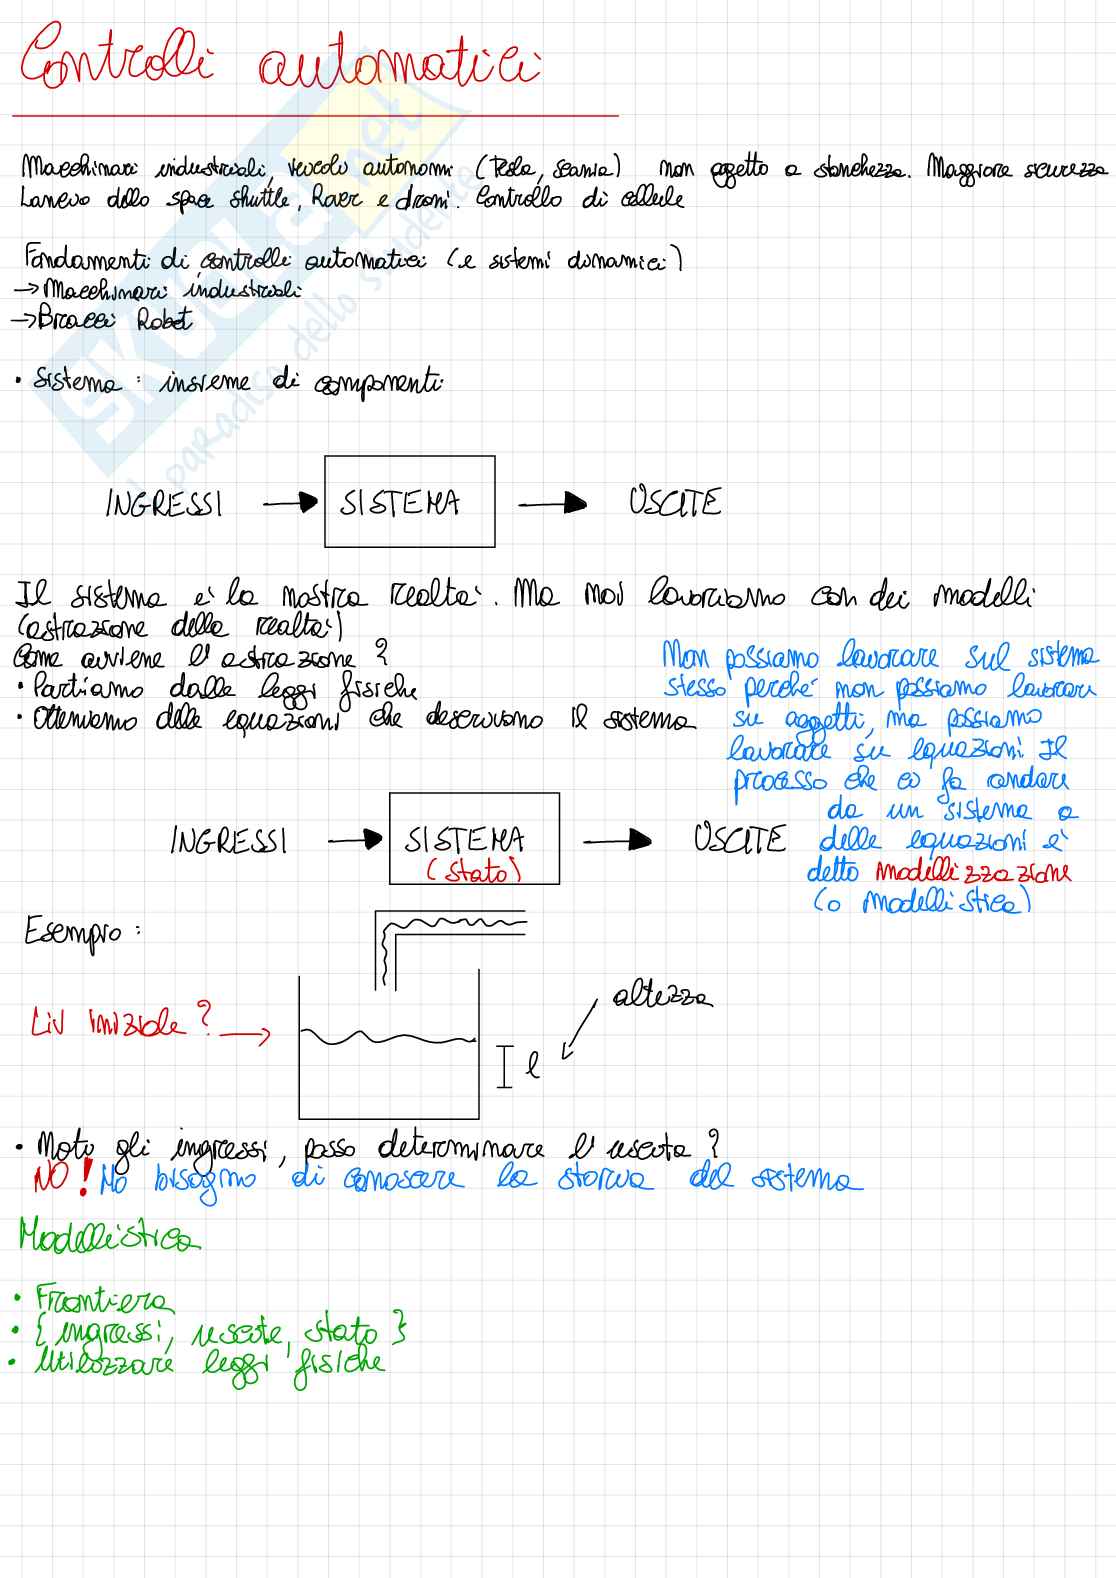 Controlli automatici
Macchinari industriali, veicolo autonomi (Tesla, scania) non oggetto a stanchezza. Maggiore sicurezza
Lancio dello space shuttle, Rover e droni. Controllo di cellule
Fondamenti di controlli automatici (e sistemi dinamici)
→ Macchinari industriali
→ Bracci Robot
• Sistema : insieme di componenti
INGRESSI → SISTEMA → USCITE
Il sistema è la nostra realtà. Ma noi lavoriamo con dei modelli
(astrazione della realtà)
Come avviene l'astrazione ?
• Partiamo dalle leggi fisiche
• Otteniamo delle equazioni che descrivono il sistema
Non possiamo lavorare sul sistema
stesso perché non possiamo lavorare
su oggetti, ma possiamo
lavorare su equazioni Il
processo che ci fa andare
da un sistema a
delle equazioni è
detto modellizzazione
(o modellistica)
INGRESSI → SISTEMA → USCITE
(stato)
Esempio :
altezza
Liv iniziale ? →
l
• Noto gli ingressi, posso determinare l'uscita ?
NO! Ho bisogno di conoscere la storia del sistema
Modellistica
• Frontiera
• { ingressi, uscite, stato }
• Utilizzare leggi fisiche
SKUOLA.net
il paradiso dello studente